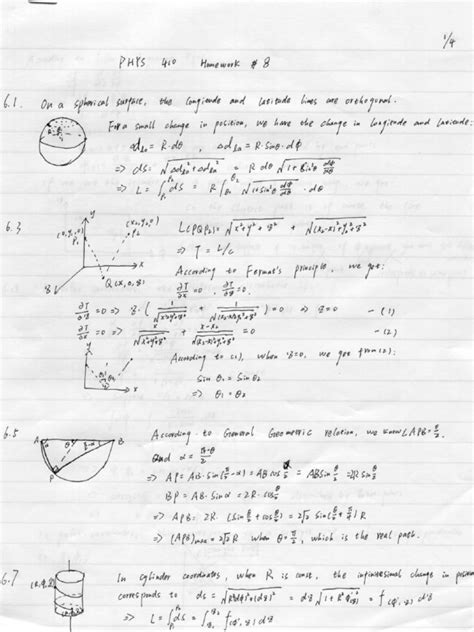 1/4
PHYS 410 Homework #8
6.1. On a spherical surface, the longitude and latitude lines are orthogonal.
For a small change in position, we have the change in longitude and latitude:
R·dθ, R·sinθ·dϕ
⇒ dS = = R dθ √
⇒ L = ∫ dS = R ∫ · dθ
6.3
y
(x₁,y₁,0)
P₁
P₂
x
Q(x,0,z)
L(PQP₂) = √x²+y₁²+z² +
⇒ T = L/c
According to Fermat's principle, we get:
∂T/∂x = 0, ∂T/∂z = 0
∂T/∂z = 0 ⇒ z·( + ) = 0 ⇒ z = 0 —(1)
∂T/∂x = 0 ⇒ + = 0 —(2)
y
x
According to (1), when z=0, we get from (2):
Sin θ₁ = Sin θ₂
⇒ θ₁ = θ₂
6.5
A θ B
P
According to General Geometric relation, we know ∠APB = π/2.
and α = (π-θ)/2
⇒ AP = AB·sin(π/2-α) = AB cos = AB Sin θ/2 = 2R Sin θ/2
BP = AB·Sin α = 2R·cos θ/2
⇒ APB = 2R·(Sin θ/2 + cos θ/2) = 2√2 Sin(θ/2+π/4) R
⇒ (APB)max = 2√2 R when θ = π/2, which is the real path.
6.7
(R,ϕ,z)
In cylinder coordinates, when R is const, the infinitesimal change in
corresponds to ds = √(Rdϕ)²+(dz)² = dz √1+R²ϕ'² = f(ϕ',z) dz
⇒ L = ∫ ds = ∫ f(ϕ',z) dz